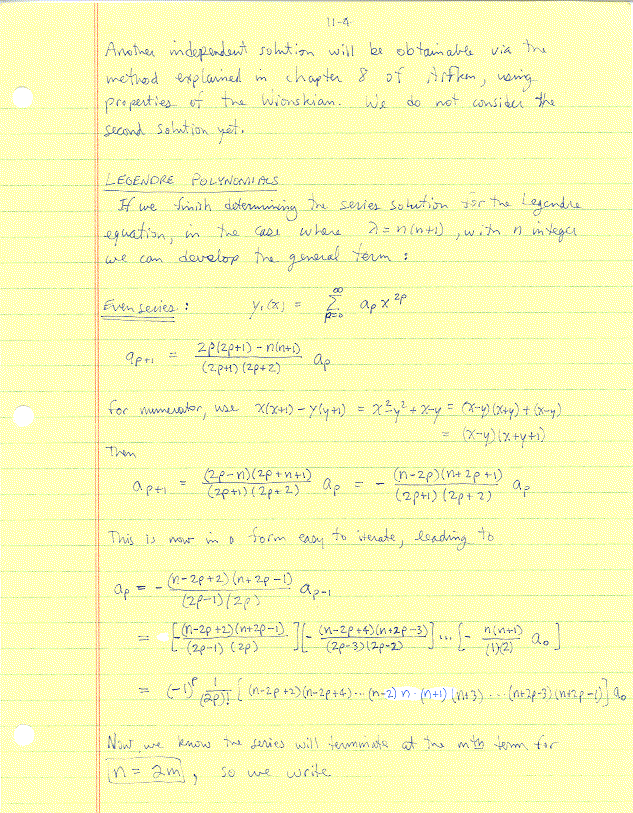 11-4
Another independent solution will be obtainable via the
method explained in chapter 8 of Arfken, using
properties of the Wronskian. We do not consider the
second solution yet.
LEGENDRE POLYNOMIALS
If we finish determining the series solution for the Legendre
equation, in the case where λ = n(n+1), with n integer
we can develop the general term :
Even series : y₁(x) = ∑_{p=0}^{∞} a_p x^{2p}
a_{p+1} = \frac{2p(2p+1) - n(n+1)}{(2p+1)(2p+2)} a_p
for numerator, use x(x+1) - y(y+1) = x² - y² + x-y = (x-y)(x+y) + (x-y)
= (x-y)(x+y+1)
Then
a_{p+1} = \frac{(2p-n)(2p+n+1)}{(2p+1)(2p+2)} a_p = - \frac{(n-2p)(n+2p+1)}{(2p+1)(2p+2)} a_p
This is now in a form easy to iterate, leading to
a_p = - \frac{(n-2p+2)(n+2p-1)}{(2p-1)(2p)} a_{p-1}
= [- \frac{(n-2p+2)(n+2p-1)}{(2p-1)(2p)}][- \frac{(n-2p+4)(n+2p-3)}{(2p-3)(2p-2)}] ... [- \frac{n(n+1)}{(1)(2)} a₀]
= (-1)^p \frac{1}{(2p)!} [(n-2p+2)(n-2p+4)...(n-2) n · (n+1)(n+3) ... (n+2p-3)(n+2p-1)] a₀
Now, we know the series will terminate at the mth term for
n = 2m, so we write